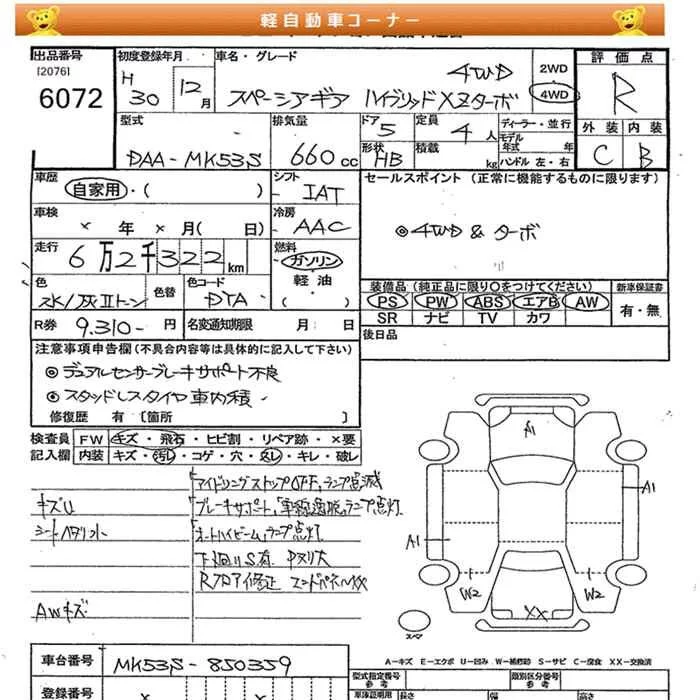 軽自動車コーナー
出品番号
[2076]
6072
初度登録年月
H
30
12
月
車名・グレード
4WD
スペーシアギア ハイブリッドXZターボ
2WD
4WD
評価点
R
外装 内装
C B
型式
DAA-MK53S
排気量
660cc
ドア
5
定員
4人
ディーラー・並行
モデル
年式 年
形状
HB
積載
kg
ハンドル 左・右
車歴
自家用・( )
シフト
IAT
セールスポイント (正常に機能するものに限ります)
◎4WD & ターボ
車検
× 年 × 月( 日)
冷房
AAC
走行
6万2千322km
燃料
ガソリン
軽油
( )
色
スズ/灰Ⅱトーン
色替
色コード
DTA
装備品(純正品に限り○をつけてください)
PS PW ABS エアB AW
SR ナビ TV カワ
新車保証書
有・無
R券 9.310- 円
名変通知期限 月 日
後日品
注意事項申告欄(不具合内容等は具体的に記入して下さい)
◎デュアルセンサーブレーキサポート不良
◎スタッドレスタイヤ車内積・
修復歴 有 〔箇所 〕
検査員
記入欄
FW キズ・飛石・ヒビ割・リペア跡・×要
内装 キズ・汚レ・コゲ・穴・スレ・キレ・破レ
アイドリングストップOFF,ランプ点滅
キズU
ブレーキサポート,車線逸脱,ランプ点灯
シートハダリント
オートハイビーム,ランプ点灯
下廻りS有 Pヌリ大
Rフロア修正 エンドパネルXX
AWキズ
A1
A1
A1
W2
W2
XX
スペア
A-キズ E-エクボ U-凹み W-補修跡 S-サビ C-腐食 XX-交換済
車台番号
MK53S-850359
型式指定番号
参考
類別区分番号
参考
登録番号
車庫証明用
長さ
幅
高さ